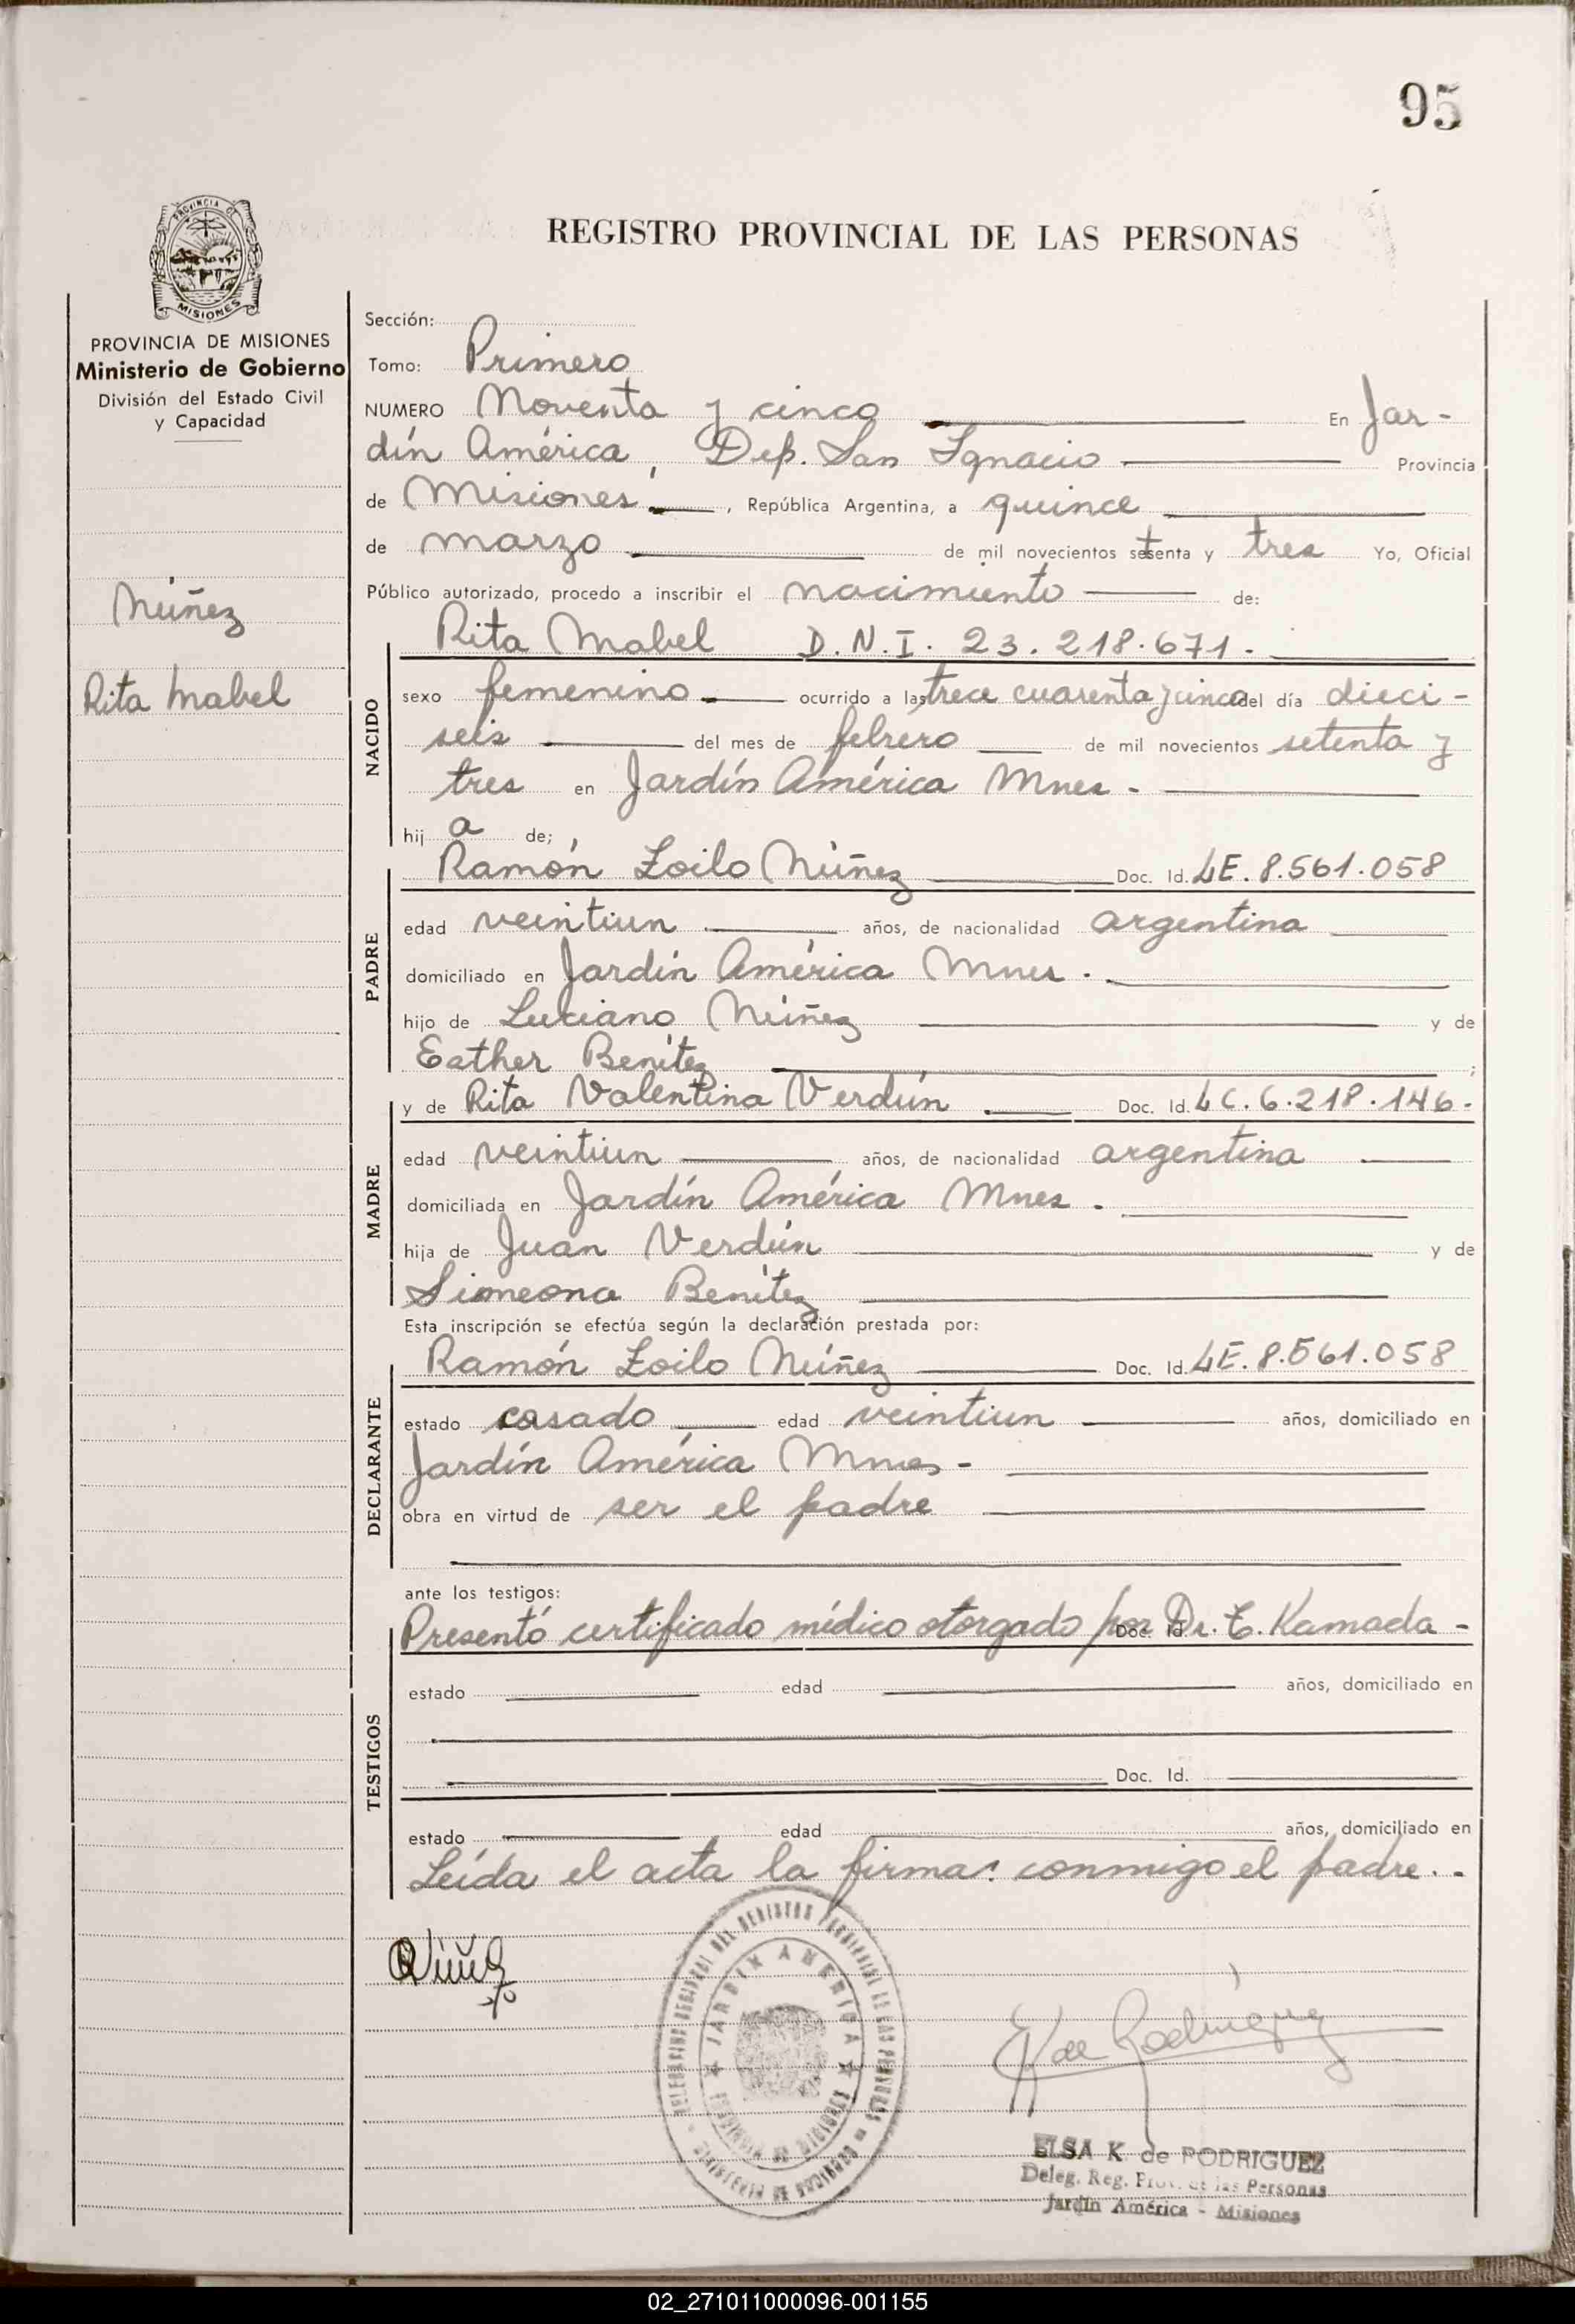 95
PROVINCIA DE
MISIONES
REGISTRO PROVINCIAL DE LAS PERSONAS
PROVINCIA DE MISIONES
Ministerio de Gobierno
División del Estado Civil
y Capacidad
Núñez
Rita Mabel
Sección:
Tomo: Primero
NUMERO Noventa y cinco En Jar-
dín América, Dep. San Ignacio Provincia
de Misiones, República Argentina, a quince
de marzo de mil novecientos setenta y tres Yo, Oficial
Público autorizado, procedo a inscribir el nacimiento de:
Rita Mabel D.N.I. 23.218.671.
NACIDO
sexo femenino ocurrido a las trece cuarenta y cinco del día dieci-
seis del mes de febrero de mil novecientos setenta y
tres en Jardín América Mnes -
hij a de;
Ramón Zoilo Núñez Doc. Id. LE. 8.561.058
PADRE
edad veintiun años, de nacionalidad argentina
domiciliado en Jardín América Mnes.
hijo de Luciano Núñez y de
Esther Benítez ;
y de Rita Valentina Verdún Doc. Id. LC. 6.218.146.
MADRE
edad veintiun años, de nacionalidad argentina
domiciliada en Jardín América Mnes.
hija de Juan Verdún y de
Simeona Benítez
Esta inscripción se efectúa según la declaración prestada por:
Ramón Zoilo Núñez Doc. Id. LE. 8.561.058
DECLARANTE
estado casado edad veintiun años, domiciliado en
Jardín América Mnes -
obra en virtud de ser el padre
ante los testigos:
Presentó certificado médico otorgado por Doc. Id. Dr. C. Kamada -
TESTIGOS
estado edad años, domiciliado en
Doc. Id.
estado edad años, domiciliado en
Leída el acta la firma: conmigo el padre. -
JARDIN AMERICA
K de Rodríguez
ELSA K de RODRIGUEZ
Deleg. Reg. Prov. de las Personas
Jardín América - Misiones
02_271011000096-001155